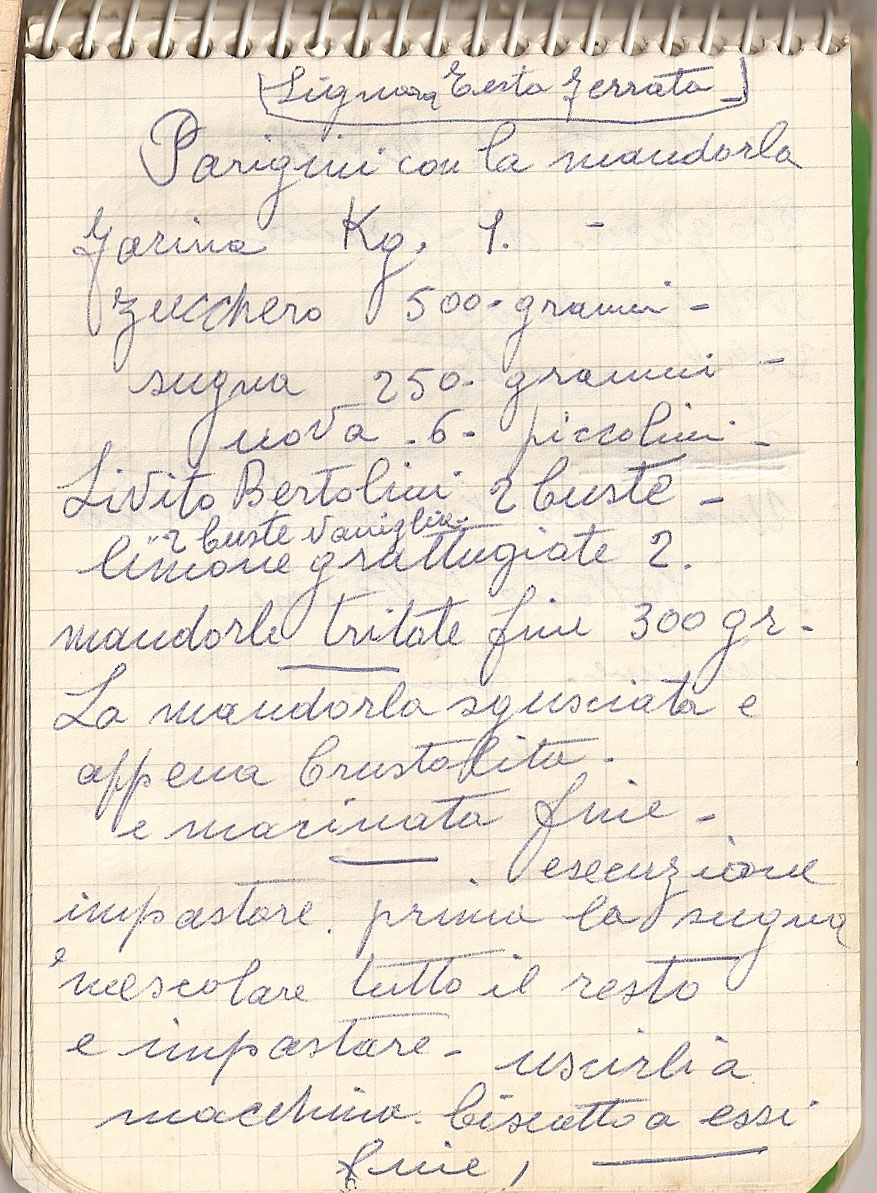 Signora Testa Ferrata
Parigini con la mandorla
Farina Kg. 1. -
Zucchero 500. grammi -
sugna 250. grammi -
uova . 6 - piccolini -
Livito Bertolini 2 buste -
2 buste vaniglia.
limone grattugiate 2.
mandorle tritate fine 300 gr -
La mandorla sgusciata e
appena brustolita.
e macinata fine -
esecuzione
impastare. prima la sugna
mescolare tutto il resto
e impastare - uscirli a
macchina. biscotto a essi
fine,